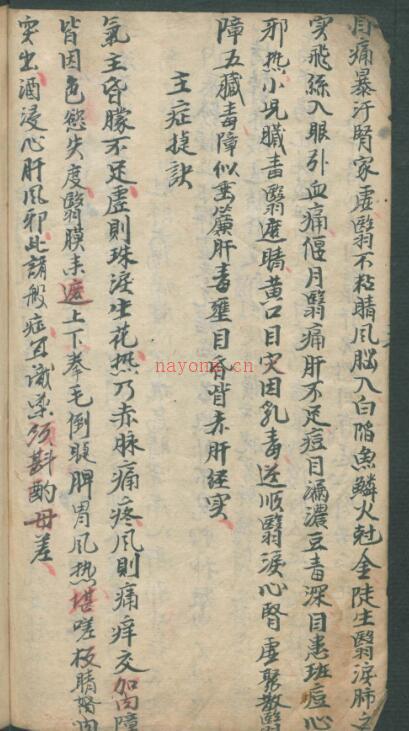 目痛暴汗腎家虛翳不粘睛風腦入白陷魚鱗火尅金陡生翳淚肺之
实飛絲入眼引血痛偃月翳痛肝不足痘目漏濃豆毒深目患班痘心
邪热小児臟毒翳遮睛黄口目灾因乳毒逆順翳淚心腎虛聚散翳
障五臟毒障似垂簾肝毒壅目昏眥赤肝経实
主症捷訣
氣主昏朦不足虛則珠淚生花热乃赤脉痛疼風則痛痒交加内障
皆因色慾失度翳膜未遮上下拳毛倒睫脾胃風热堪嗟板睛努肉
突出酒浸心肝風邪此諸般症宜識深须斟酌毋差
nayona.cn